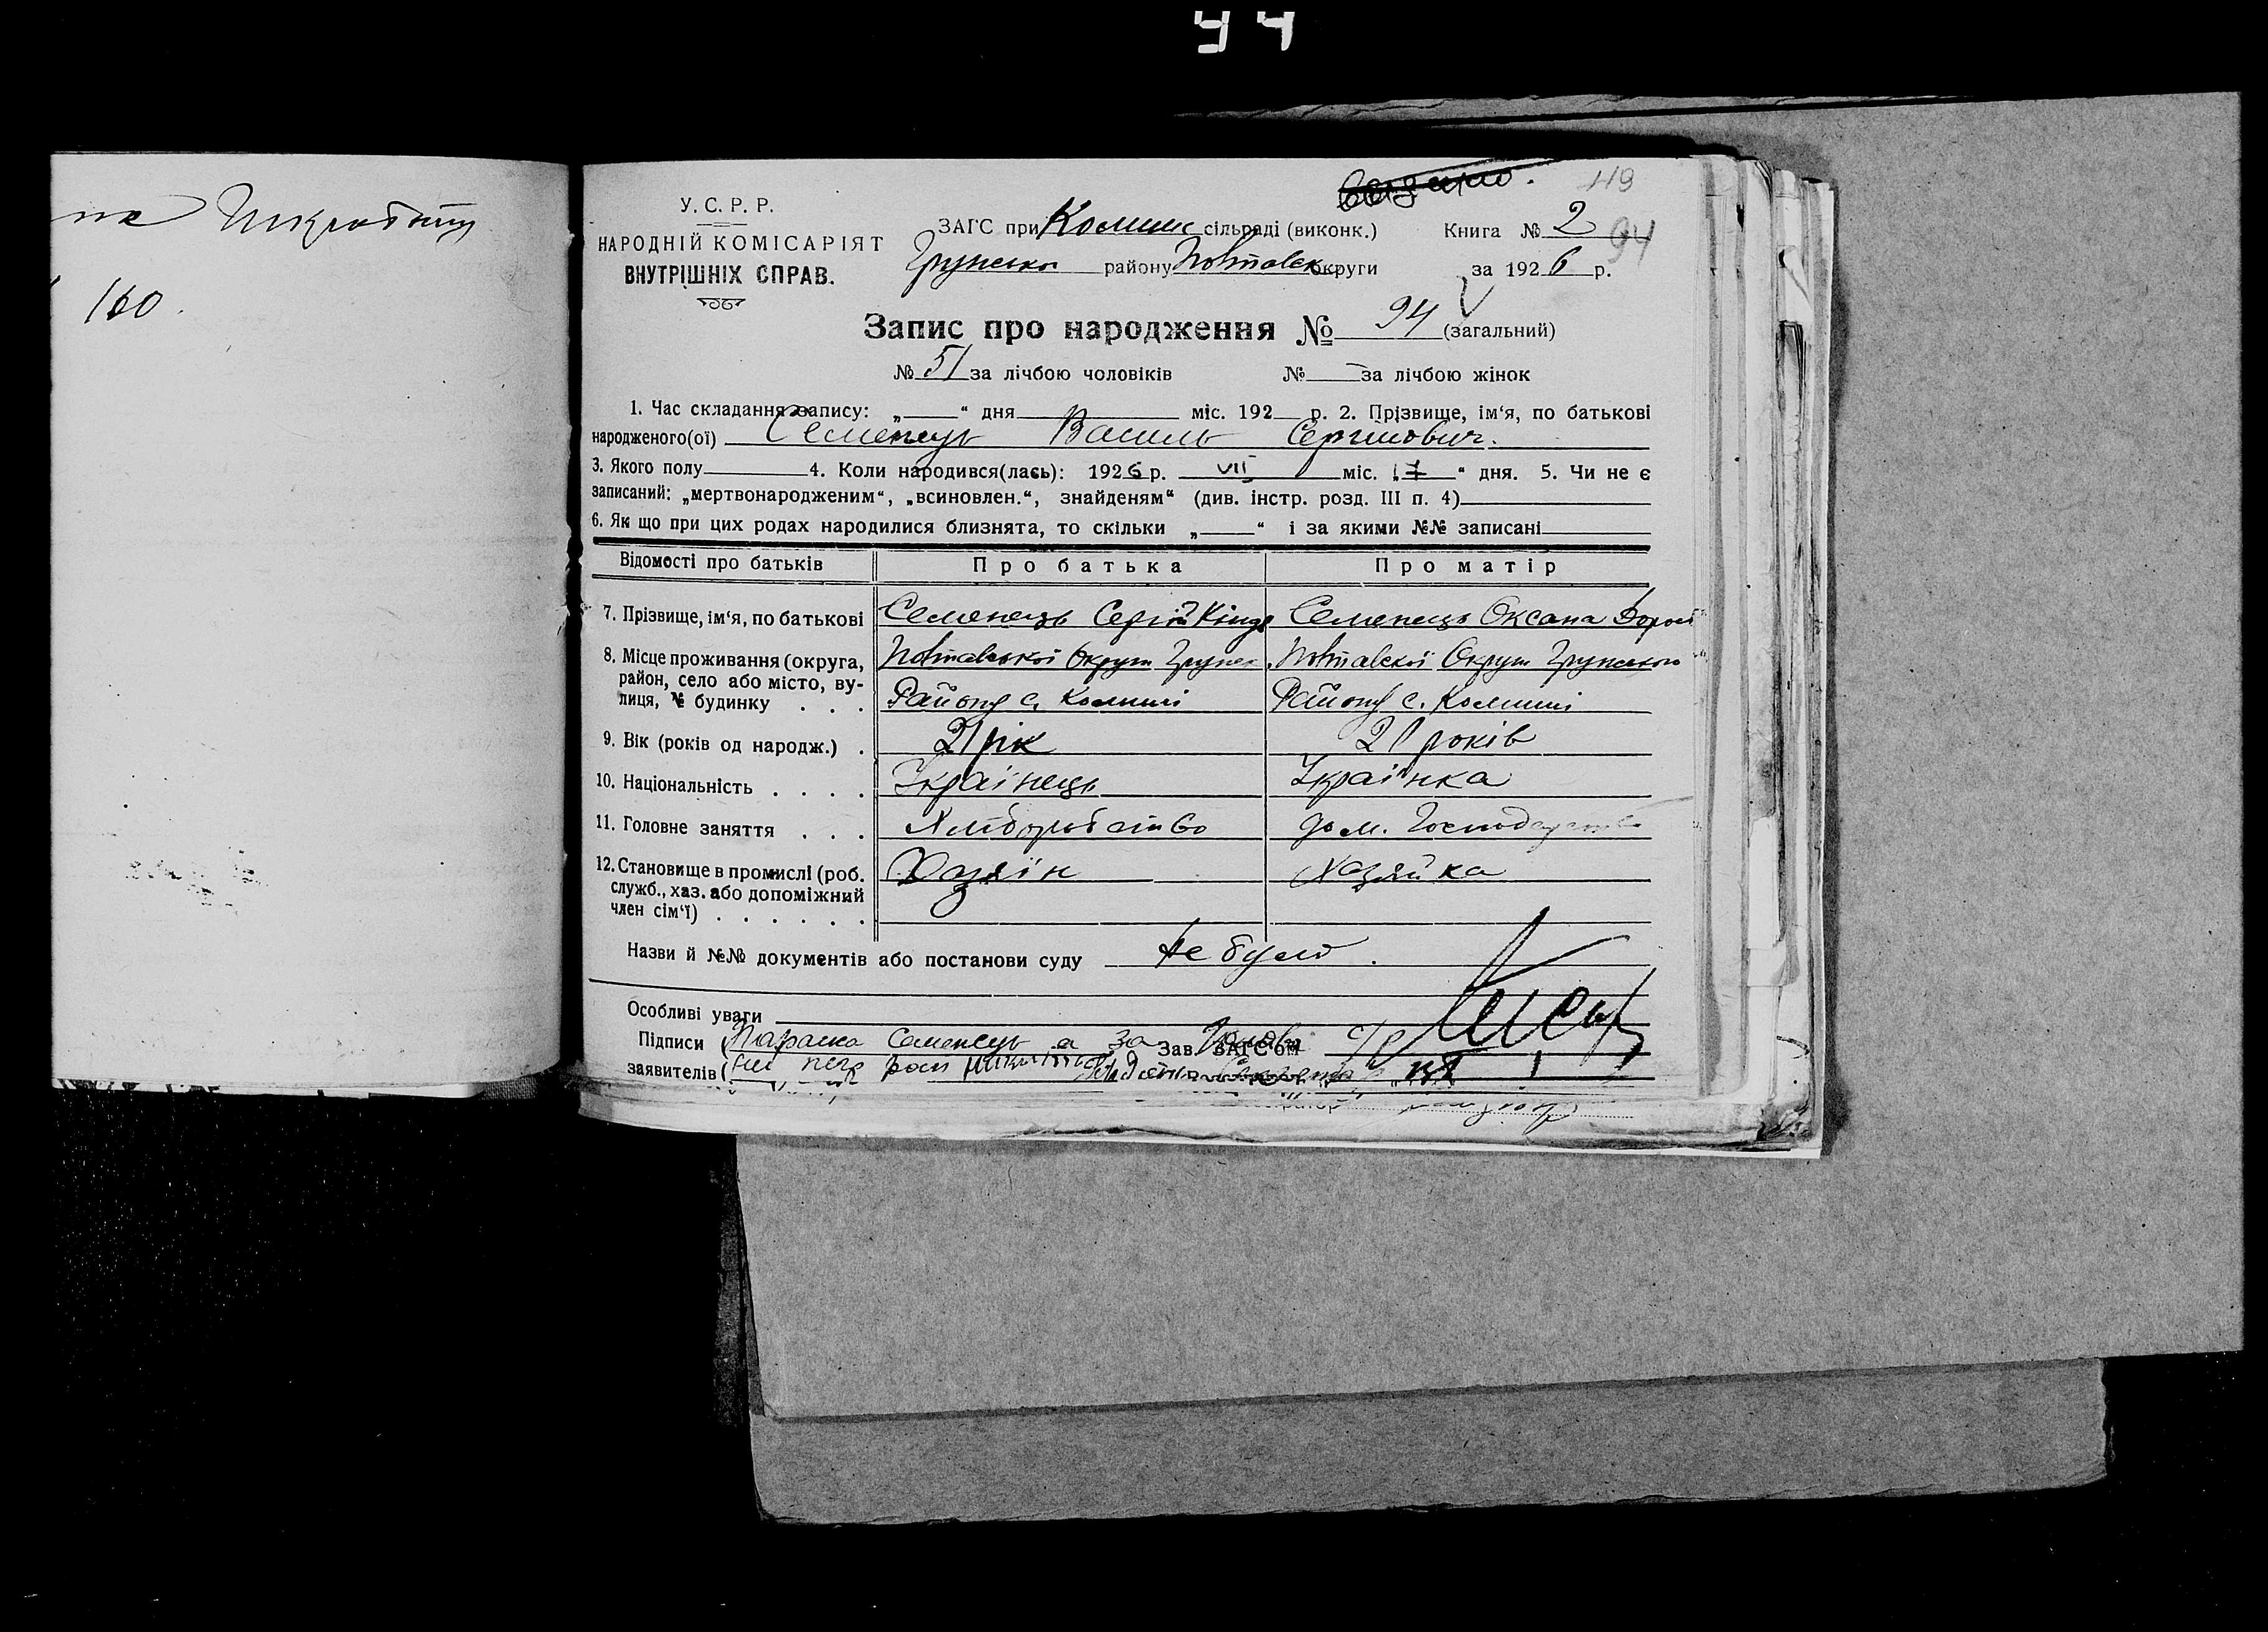 94
на
160.
119
У. С. Р. Р.
НАРОДНІЙ КОМІСАРІЯТ
ВНУТРІШНІХ СПРАВ.
ЗАГС при Комиш сільраді (виконк.) Книга № 2
94
Грунсько району Полтавськ округи за 1926 р.
Запис про народження № 94 (загальний)
№ 51 за лічбою чоловіків № — за лічбою жінок
1. Час складання запису: „ “ дня міс. 192 р. 2. Прізвище, ім‘я, по батькові
народженого(ої) Семенець Василь Сергійович.
3. Якого полу 4. Коли народився(лась): 1926 р. VII міс. 17 “ дня. 5. Чи не є
записаний: „мертвонародженим“, „всиновлен.“, знайденям“ (див. інстр. розд. III п. 4)
6. Як що при цих родах народилися близнята, то скільки „ “ і за якими №№ записані
Відомості про батьків Про батька Про матір
7. Прізвище, ім‘я, по батькові Семенець Сергій Семенець Оксана
8. Місце проживання (округа, район, село або місто, вулиця, № будинку . . . Полтавської Округи Грунск Полтавскої Округи Грунського
Району с. Комиші Району с. Комиші
9. Вік (років од народж.) . 21 рік 20 років
10. Національність . . . . Українець Українка
11. Головне заняття . . . Хліборобство дом. Господарство
12. Становище в промислі (роб. служб., хаз. або допоміжний член сім‘ї) . . . . . . Хазяїн Хазяйка
Назви й №№ документів або постанови суду Не було.
Особливі уваги
Підписи Параска Семенець а за Зав. ЗАГС‘ом
заявителів